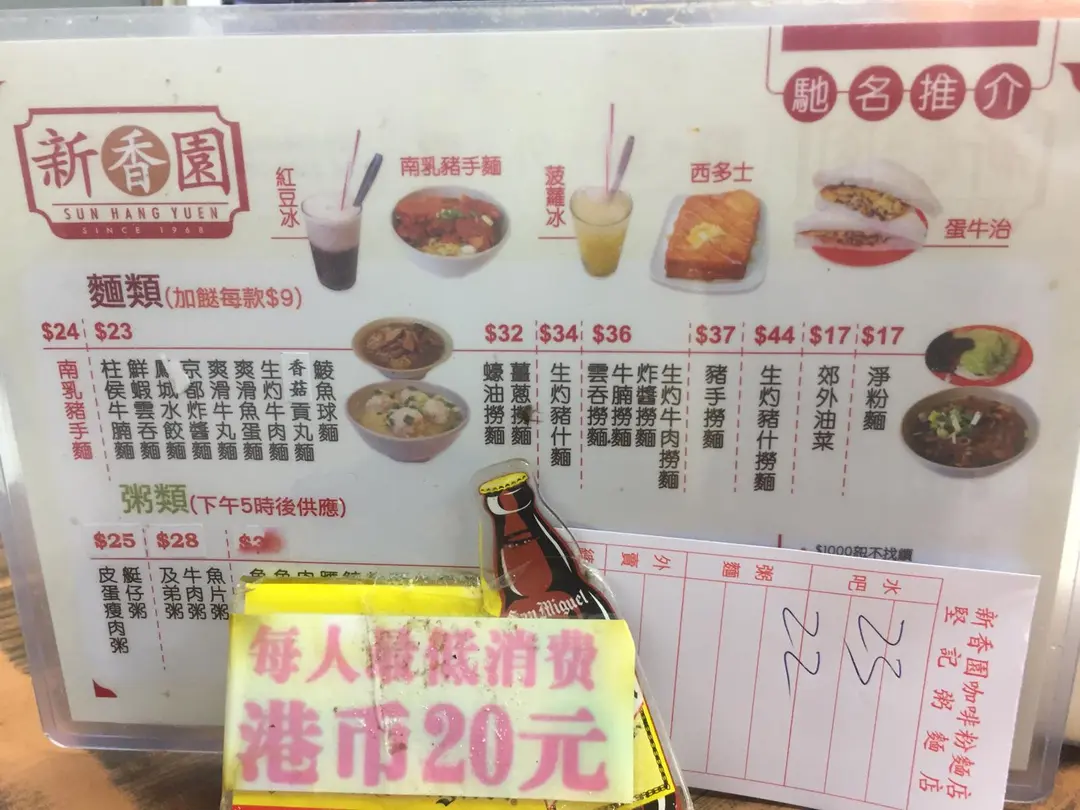 馳名推介
新香園
SUN HANG YUEN
SINCE 1968
紅豆冰
南乳豬手麵
菠蘿冰
西多士
蛋牛治
麵類(加餸每款$9)
$24
南乳豬手麵
$23
柱侯牛腩麵
鮮蝦雲吞麵
鳳城水餃麵
京都炸醬麵
爽滑牛丸麵
爽滑魚蛋麵
生灼牛肉麵
香菇貢丸麵
鯪魚球麵
$32
蠔油撈麵
薑蔥撈麵
$34
生灼豬什麵
$36
雲吞撈麵
牛腩撈麵
炸醬撈麵
生灼牛肉撈麵
$37
豬手撈麵
$44
生灼豬什撈麵
$17
郊外油菜
$17
淨粉麵
粥類(下午5時後供應)
$25
皮蛋瘦肉粥
艇仔粥
$28
及弟粥
牛肉粥
魚片粥
$1000起不找續
San Miguel
每人最低消費
港币20元
新香園咖啡粉麵店
堅記粥麵店
水吧
粥麵
外賣
25
22